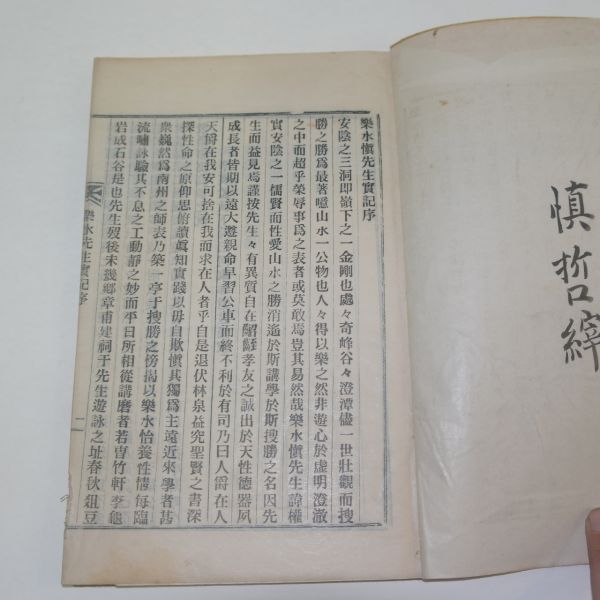 慎哲縡
樂水愼先生實記序
安陰之三洞即嶺下之一金剛也處々奇峰谷々澄潭儘一世壯觀而搜
勝之勝爲最著噫山水一公物也人々得以樂之然非遊心於虛明澄澈
之中而超乎榮辱事爲之表者或莫敢焉豈其易然哉樂水愼先生諱權
實安陰之一儒賢而性愛山水之勝消遙於斯講學於斯搜勝之名因先
生而益見焉謹按先生々有異質自在齠齡孝友之誠出於天性德器夙
成長者皆期以遠大遵親命早習公車而終不利於有司乃曰人爵在人
天爵在我安可捨在我而求在人者乎自是退伏林泉益究聖賢之書深
探性命之原仰思俯讀眞知實踐以毋自欺愼其獨爲主遠近來學者甚
衆巍然爲南州之師表乃築一亭于搜勝之傍揭以樂水怡養性情每臨
流嘯詠驗其不息之工動靜之妙而平日所相從講磨者若曺竹軒李龜
岩成石谷是也先生歿後未幾鄕章甫建祠于先生遊詠之址春秋俎豆
樂水先生實記序
一